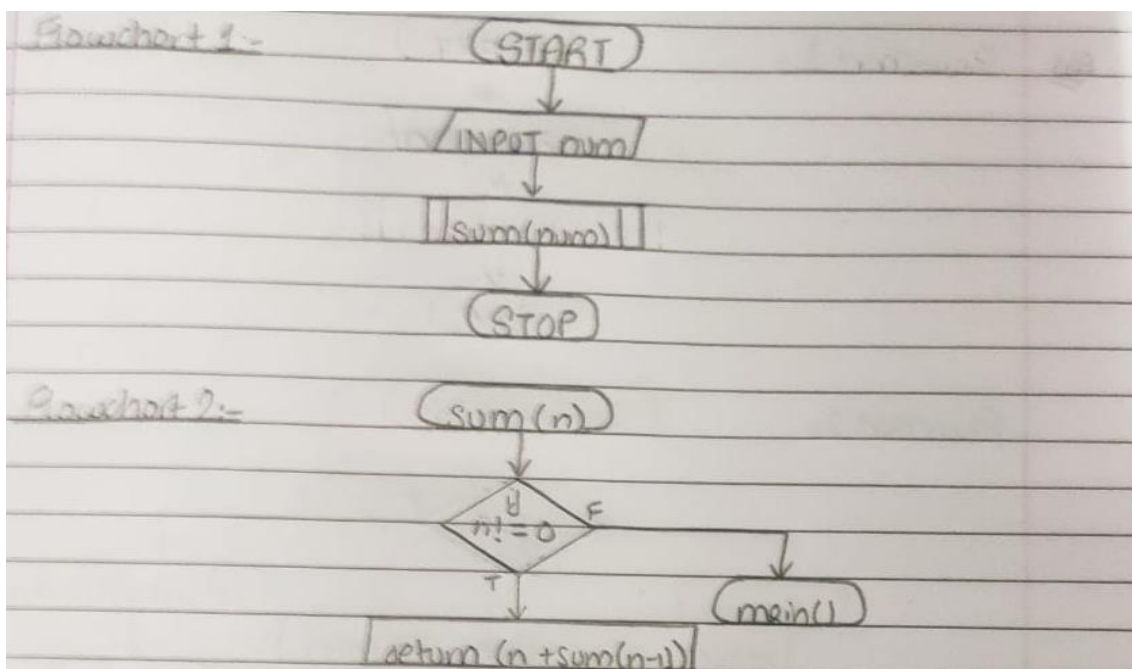 Flowchart 1:-
START
INPUT num
sum(num)
STOP
Flowchart 2:-
sum(n)
if
n!=0
F
T
main()
return (n+sum(n-1))